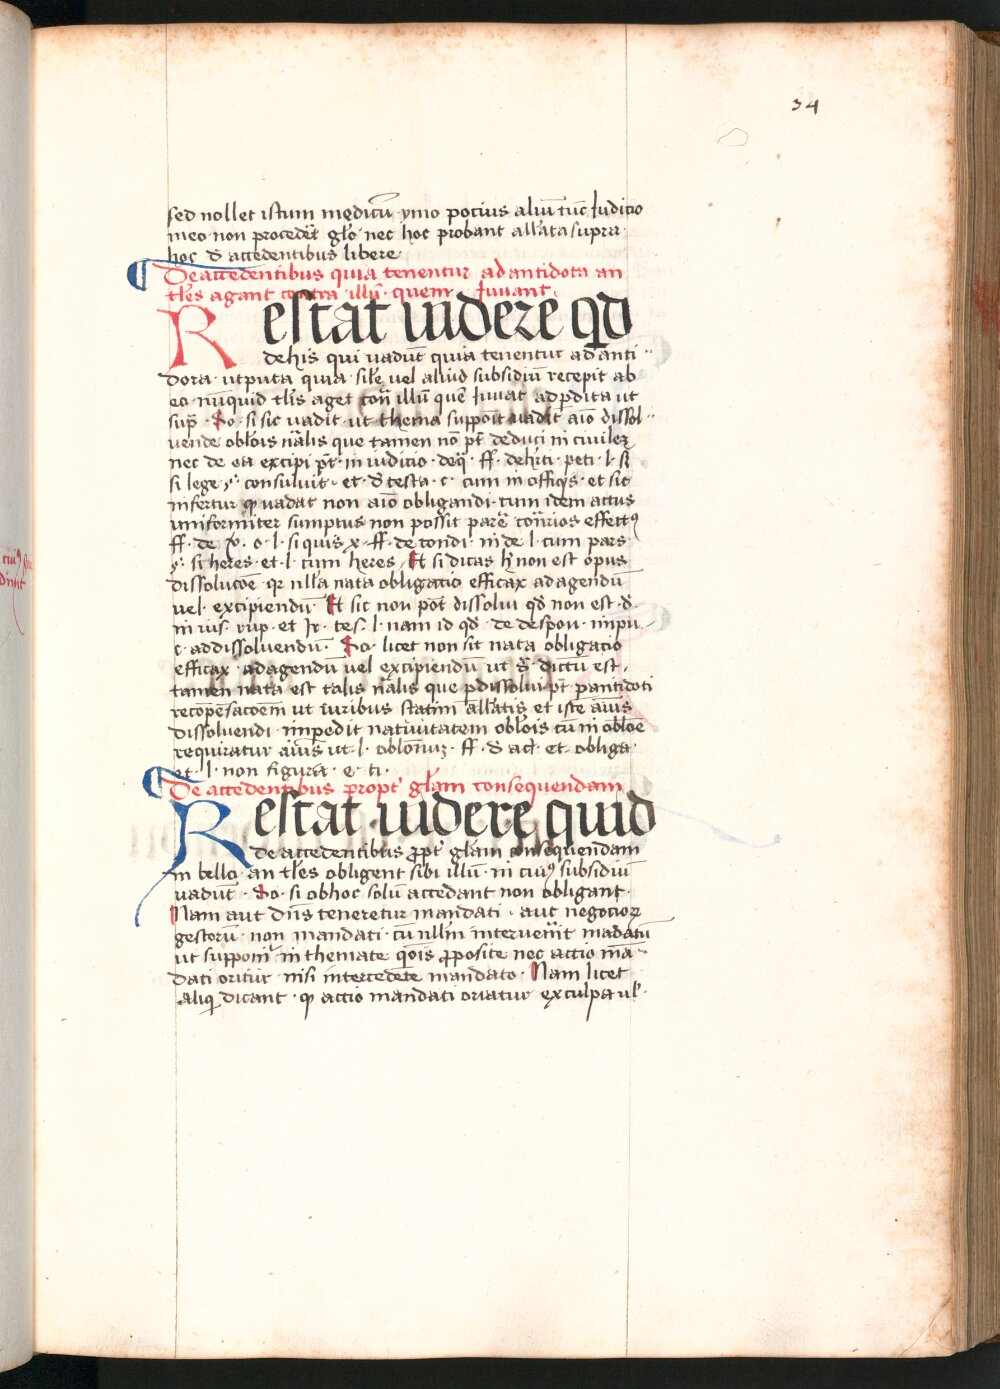 34
sed nollet istum medicū · ymo pocius aliū tūc Iudicio
meo non procedēt glo' nec hoc probant all'ata supra ·
hoc · d accedentibus libere
De accedentibus quia tenentur ad antidota an
tl'es agant contra illū · quem · Iuuant ·
Restat uidere qd
de his qui uadūt quia tenentur ad anti
dora · utputa quia sil'e uel aliud subsidiū recepit ab
eo · nūquid tl'is aget con̄ illū quē Iuuat ad p̄dita ut
sup̄ · So · si sic uadit · ut thema suppoīt uadit aīo dissol
uende obl'ois nālis que tamen nō pt̄ deduci in ciuilez
nec de ea excipi pōt · in iudicio · deq̄ · ff · de h'iti · peti · l · s
si lege · consuluit · et · d testa · c · cum in officijs · et sic
infertur qꝫ uadat non aīo obligandi · cum idem actus
uniformiter sumptus non possit parē con̄rios effectꝰ
ff · de · v · o · l · si quis · x · ff · de condi · in de · l · cum pars
· si heres · et · l · cum heres · Et si dicas h' non est opus
dissolucōe · qr nll'a nata obligacio efficax ad agendū
uel · excipiendū · Et sic non pōt dissolui qd non est · d ·
in ius · rup · et Ir · tes · l · nam id qd · de despon · inpu
c · ad dissoluendū · So · licet non sit nata obligacio
efficax · ad agendū uel excipiendū ut s̄ · dictū est ·
tamen nata est talis nālis que p dissolui pt̄ p antidoti
recōpēsacoēm ut iuribus statim all'atis et iste aīus
dissoluendi · impedit natiuitatem obl'ois cū in obl'oē
requiratur aīus ut · l · obl'onuꝫ · ff · d act · et · obliga ·
et · l · non figura · e · ti ·
De accedentibus propt' gl'am consequendam
Restat uidere quid
de accedentibus ꝓpt' gl'am consequendam
in bello · an tl'es obligent sibi illū · in cuiꝰ subsidiū
uadūt · So · si ob hoc solū accedant non obligant ·
Nam aut dn̄s teneretur mandati · aut negocioꝝ
gestorū · non mandati · cū nllm̄ interuenīt mādatū
ut supponiī in themate q̄ois ꝓposite nec actio mā
dati oritur nisi intercedēte mandato · Nam licet
aliqi dicant · qꝫ actio mandati oriatur ex culpa ul' ·